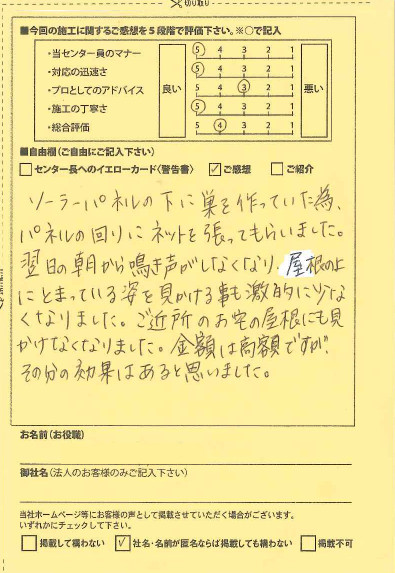 切り取り
■今回の施工に関するご感想を5段階で評価下さい。※○で記入
・当センター員のマナー 5 4 3 2 1
・対応の迅速さ 5 4 3 2 1
・プロとしてのアドバイス 良い 5 4 3 2 1 悪い
・施工の丁寧さ 5 4 3 2 1
・総合評価 5 4 3 2 1
■自由欄(ご自由にご記入下さい)
センター長へのイエローカード〈警告書〉 ✓ご感想 ご紹介
ソーラーパネルの下に巣を作っていた為、
パネルの回りにネットを張ってもらいました。
翌日の朝から鳴き声がしなくなり、屋根の上
にとまっている姿を見かける事も激的に少な
くなりました。ご近所のお宅の屋根にも見
かけなくなりました。金額は高額ですが、
その分の効果はあると思いました。
お名前(お役職)
御社名(法人のお客様のみご記入下さい)
当社ホームページ等にお客様の声として掲載させていただく場合がございます。
いずれかにチェックして下さい。
掲載して構わない ✓社名・名前が匿名ならば掲載しても構わない 掲載不可